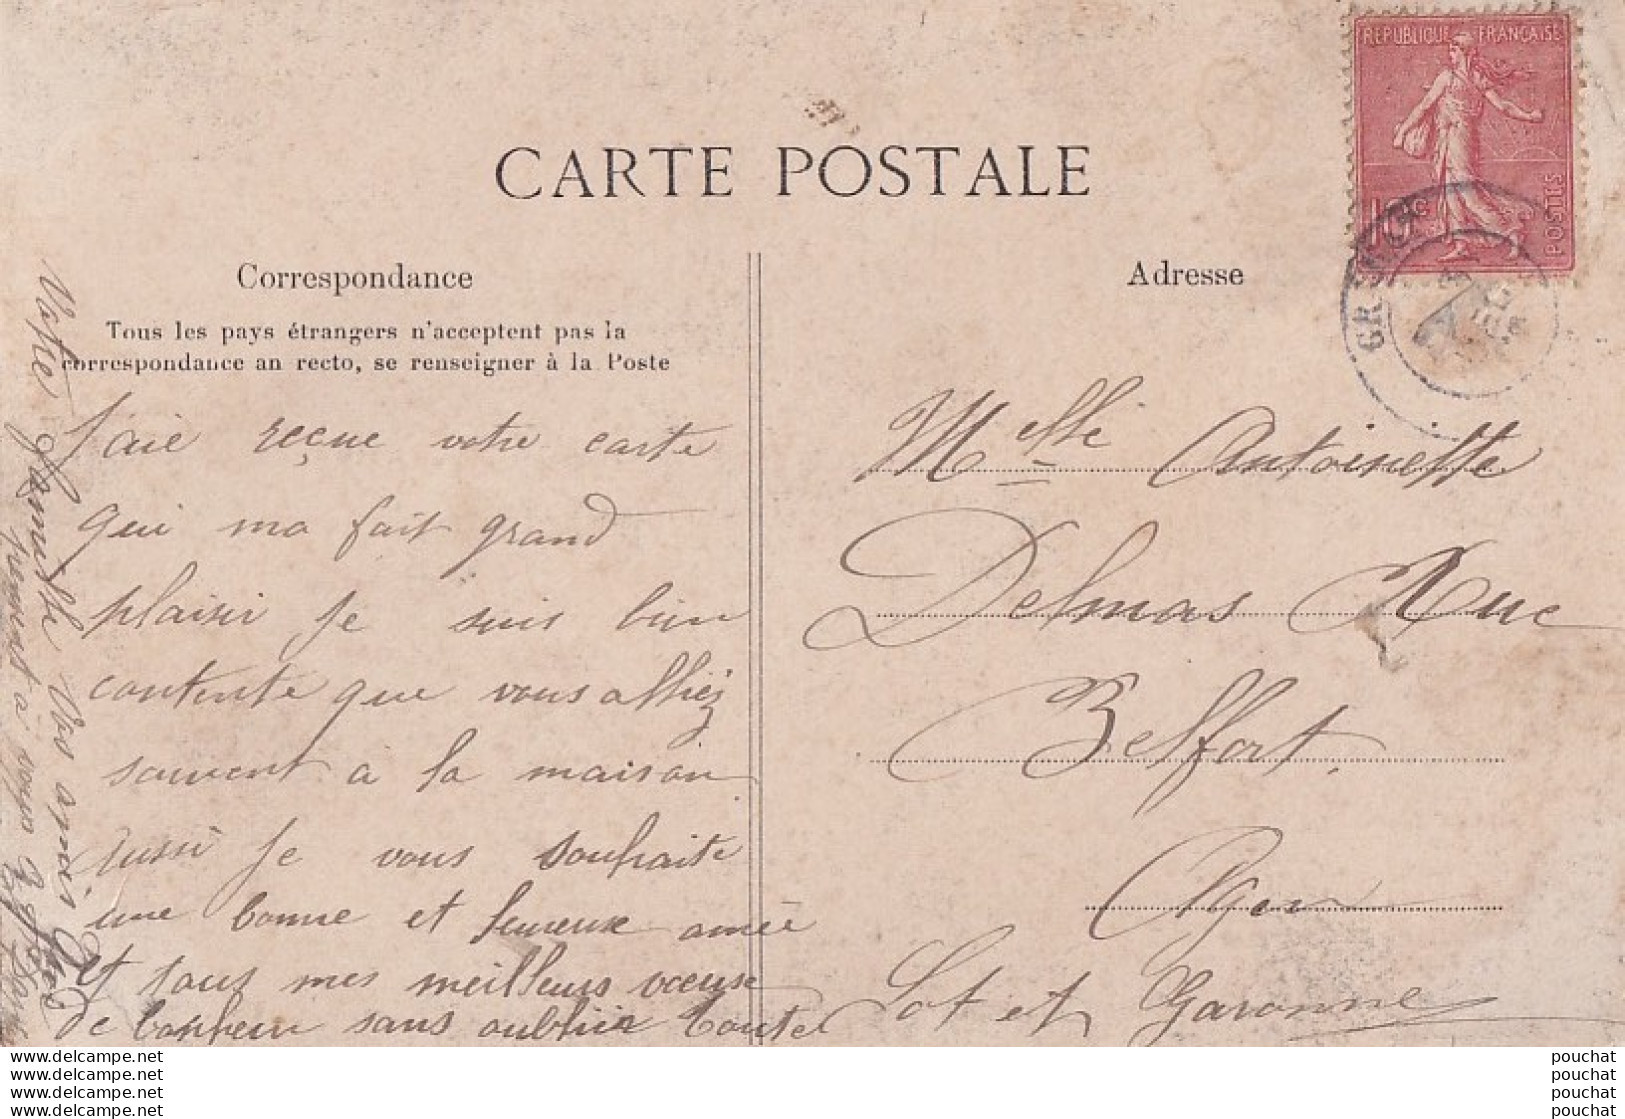 CARTE POSTALE
REPUBLIQUE FRANCAISE
10 c
POSTES
Correspondance
Tous les pays étrangers n'acceptent pas la
correspondance an recto, se renseigner à la Poste
J'aie reçue votre carte
qui ma fait grand
plaisir je suis bien
contente que vous alliéz
souvent à la maison
aussi je vous souhaite
une bonne et heureuse année
et tous mes meilleurs voeuse
de bonheur sans oublier toute
Votre famille Vos amis
pensent à vous
Adresse
Melle Antoinette
Delmas Rue
Belfort.
Agen
Lot et Garonne
www.delcampe.net
www.delcampe.net
www.delcampe.net
www.delcampe.net
pouchat
pouchat
pouchat
pouchat